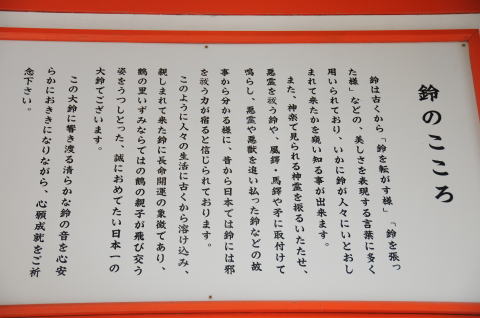 鈴のこころ
鈴は古くから「鈴を転がす様」「鈴を張っ
た様」などの、美しさを表現する言葉に多く
用いられており、いかに鈴が人々にいとおし
まれて来たかを窺い知る事が出来ます。
また、神楽で見られる神霊を振るいたたせ、
悪霊を祓う鈴や、風鐸・馬鐸や矛に取付けて
鳴らし、悪霊や悪獣を追い払った鈴などの故
事から分かる様に、昔から日本では鈴には邪
を祓う力が宿ると信じられております。
このように人々の生活に古くから溶け込み、
親しまれて来た鈴に長命開運の象徴であり、
鶴の里いずみならではの鶴の親子が飛び交う
姿をうつしとった、誠におめでたい日本一の
大鈴でございます。
この大鈴に響き渡る清らかな鈴の音を心安
らかにおききになりながら、心願成就をご祈
念下さい。